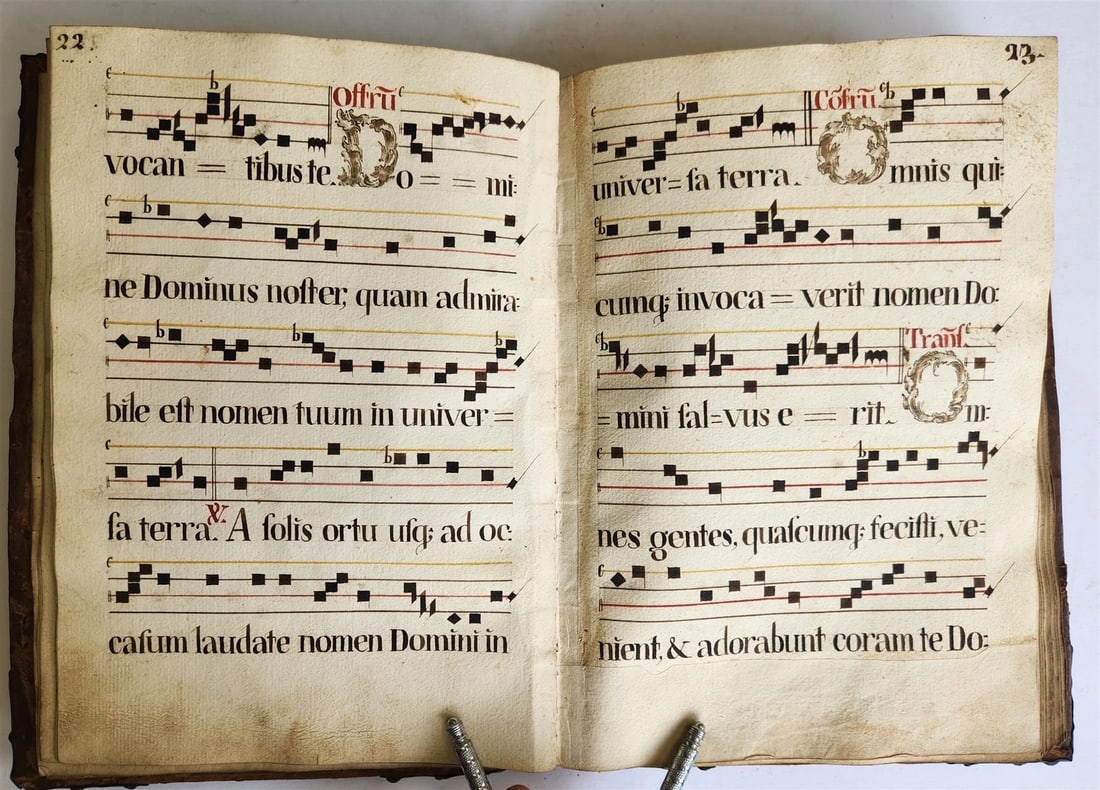 22.
Offrū
vocan = tibus te. Do = = mi:
ne Dominus noster, quam admira:
bile est nomen tuum in univer =
sa terra. ℣. A solis ortu usq; ad oc:
casum laudate nomen Domini in
23.
Cōfrū.
univer = sa terra. Omnis qui:
cumq; invoca = verit nomen Do:
Transf.
= mini sal = vus e = rit. Om:
nes gentes, quascumq; fecisti, ve =
nient, & adorabunt coram te Do: